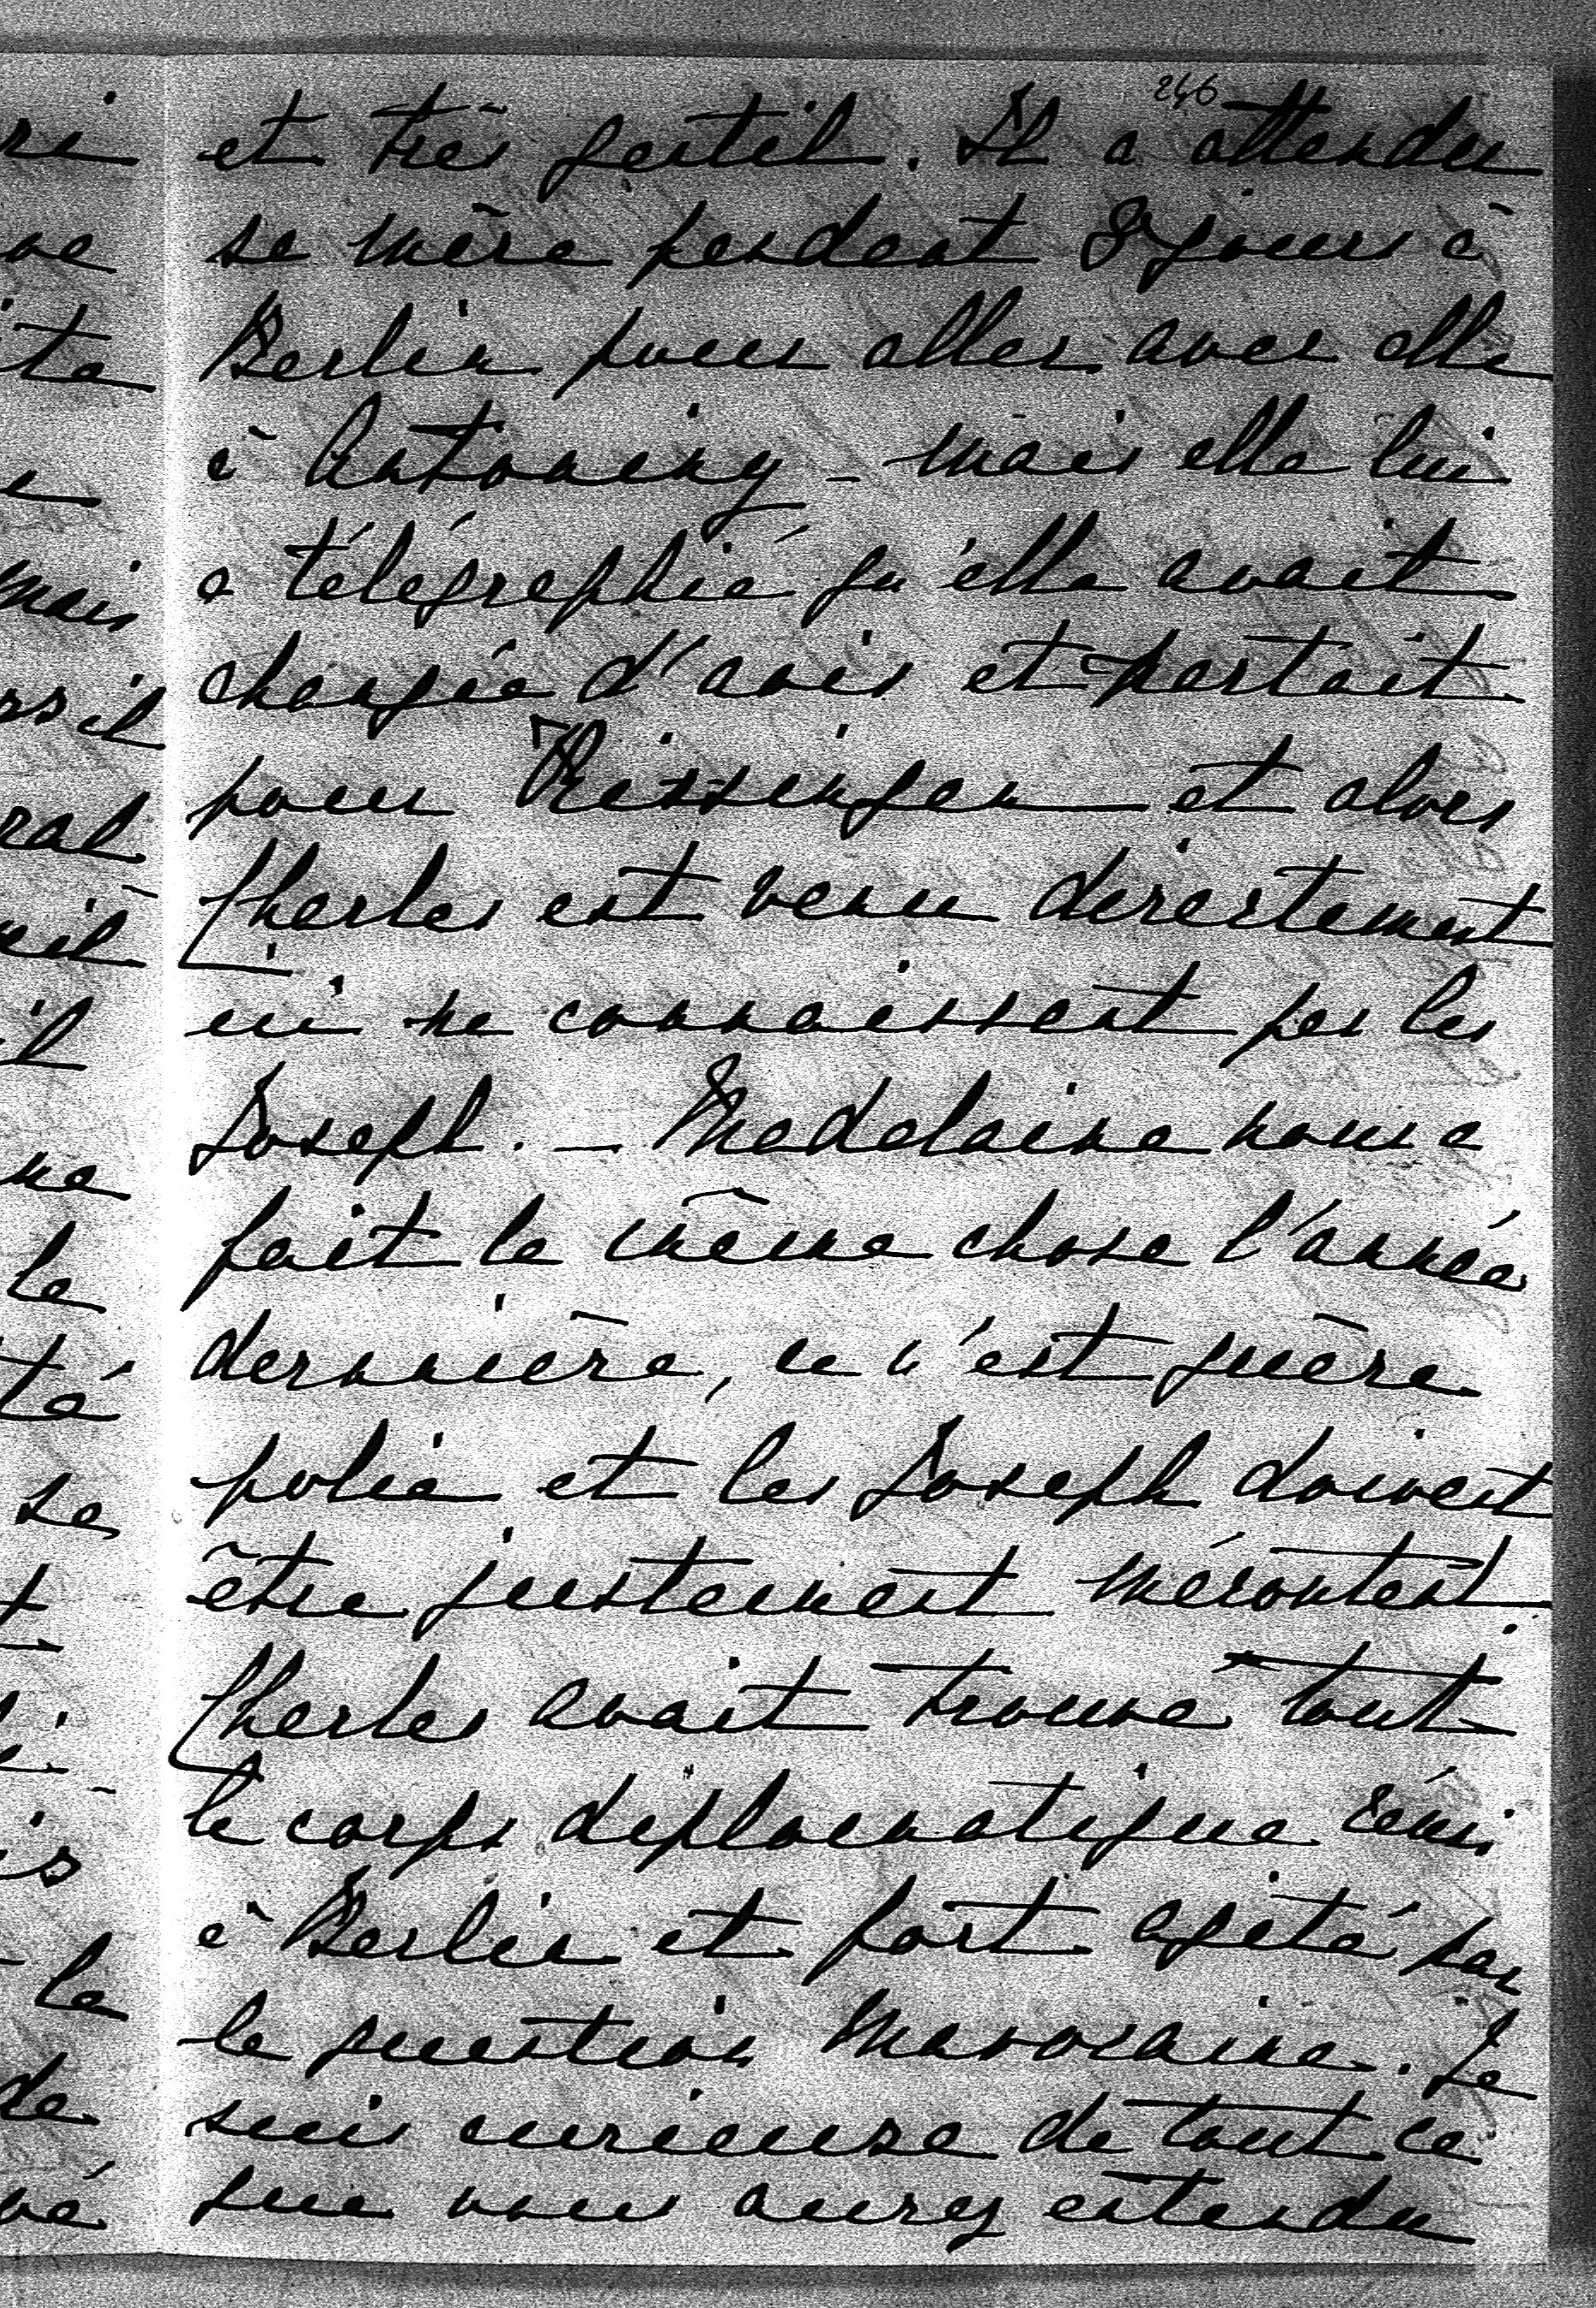 246
et très gentil. Il a attendu
sa mère pendant 8 jours à
Berlin pour aller avec elle
à Antoniny – mais elle lui
a télégraphié qu'elle avait
changée d'avis et partait
pour Kissingen et alors
Charles est venu directement
ici ne connaissant pas les
Joseph. – Madelaine nous a
fait la même chose l'année
dernnière, ce n'est guère
polie et les Joseph doivent
être justement mécontent.
Charles avait trouvé tout
le corps diplomatique réuni
à Berlin et fort agité par
la question Marocaine. Je
suis curieuse de tout ce
que vous aurez entendu